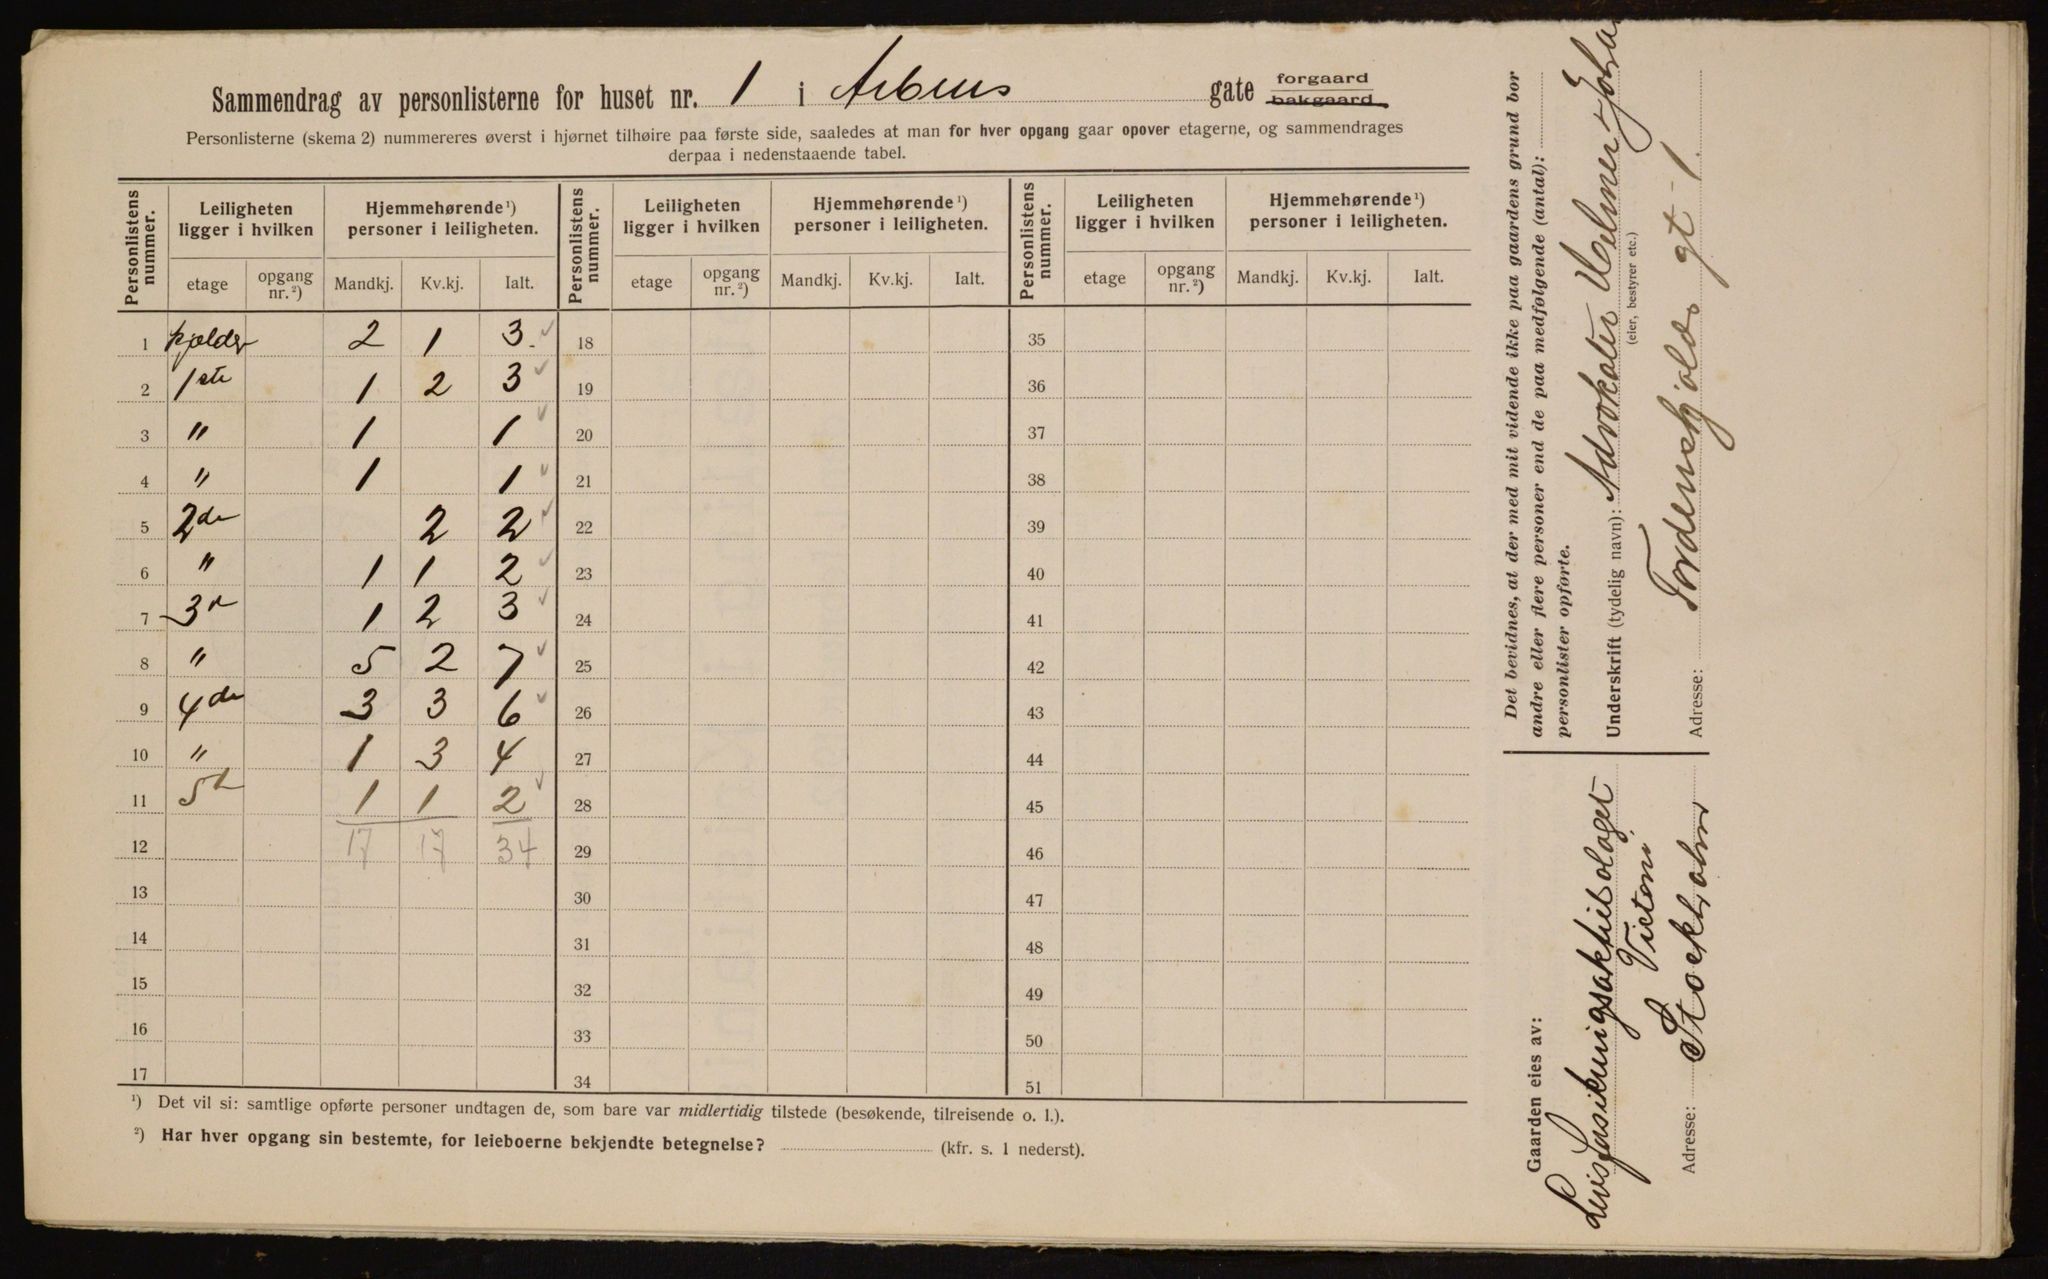 Sammendrag av personlisterne for huset nr. 1 i Arbins gate forgaard
bakgaard
Personlisterne (skema 2) nummereres øverst i hjørnet tilhøire paa første side, saaledes at man for hver opgang gaar opover etagerne, og sammendrages
derpaa i nedenstaaende tabel.
Personlistens nummer. Leiligheten ligger i hvilken Hjemmehørende ¹) personer i leiligheten. Personlistens nummer. Leiligheten ligger i hvilken Hjemmehørende ¹) personer i leiligheten. Personlistens nummer. Leiligheten ligger i hvilken Hjemmehørende ¹) personer i leiligheten.
etage opgang nr. ²) Mandkj. Kv.kj. Ialt. etage opgang nr. ²) Mandkj. Kv.kj. Ialt. etage opgang nr. ²) Mandkj. Kv.kj. Ialt.
1 kjelder 2 1 3 18 35
2 1ste 1 2 3 19 36
3 " 1 1 20 37
4 " 1 1 21 38
5 2de 2 2 22 39
6 " 1 1 2 23 40
7 3de 1 2 3 24 41
8 " 5 2 7 25 42
9 4de 3 3 6 26 43
10 " 1 3 4 27 44
11 5t 1 1 2 28 45
12 17 17 34 29 46
13 30 47
14 31 48
15 32 49
16 33 50
17 34 51
¹) Det vil si: samtlige opførte personer undtagen de, som bare var midlertidig tilstede (besøkende, tilreisende o. l.).
²) Har hver opgang sin bestemte, for leieboerne bekjendte betegnelse? (kfr. s. 1 nederst).
Det bevidnes, at der med mit vidende ikke paa gaardens grund bor
andre eller flere personer end de paa medfølgende (antal):
personlister opførte.
Underskrift (tydelig navn): Advokater Helmer &
(eier, bestyrer etc.)
Adresse: Tordenskjolds gt 1.
Gaarden eies av:
Livsforsikringsaktiebolaget
Victoria
Adresse: Stockholm